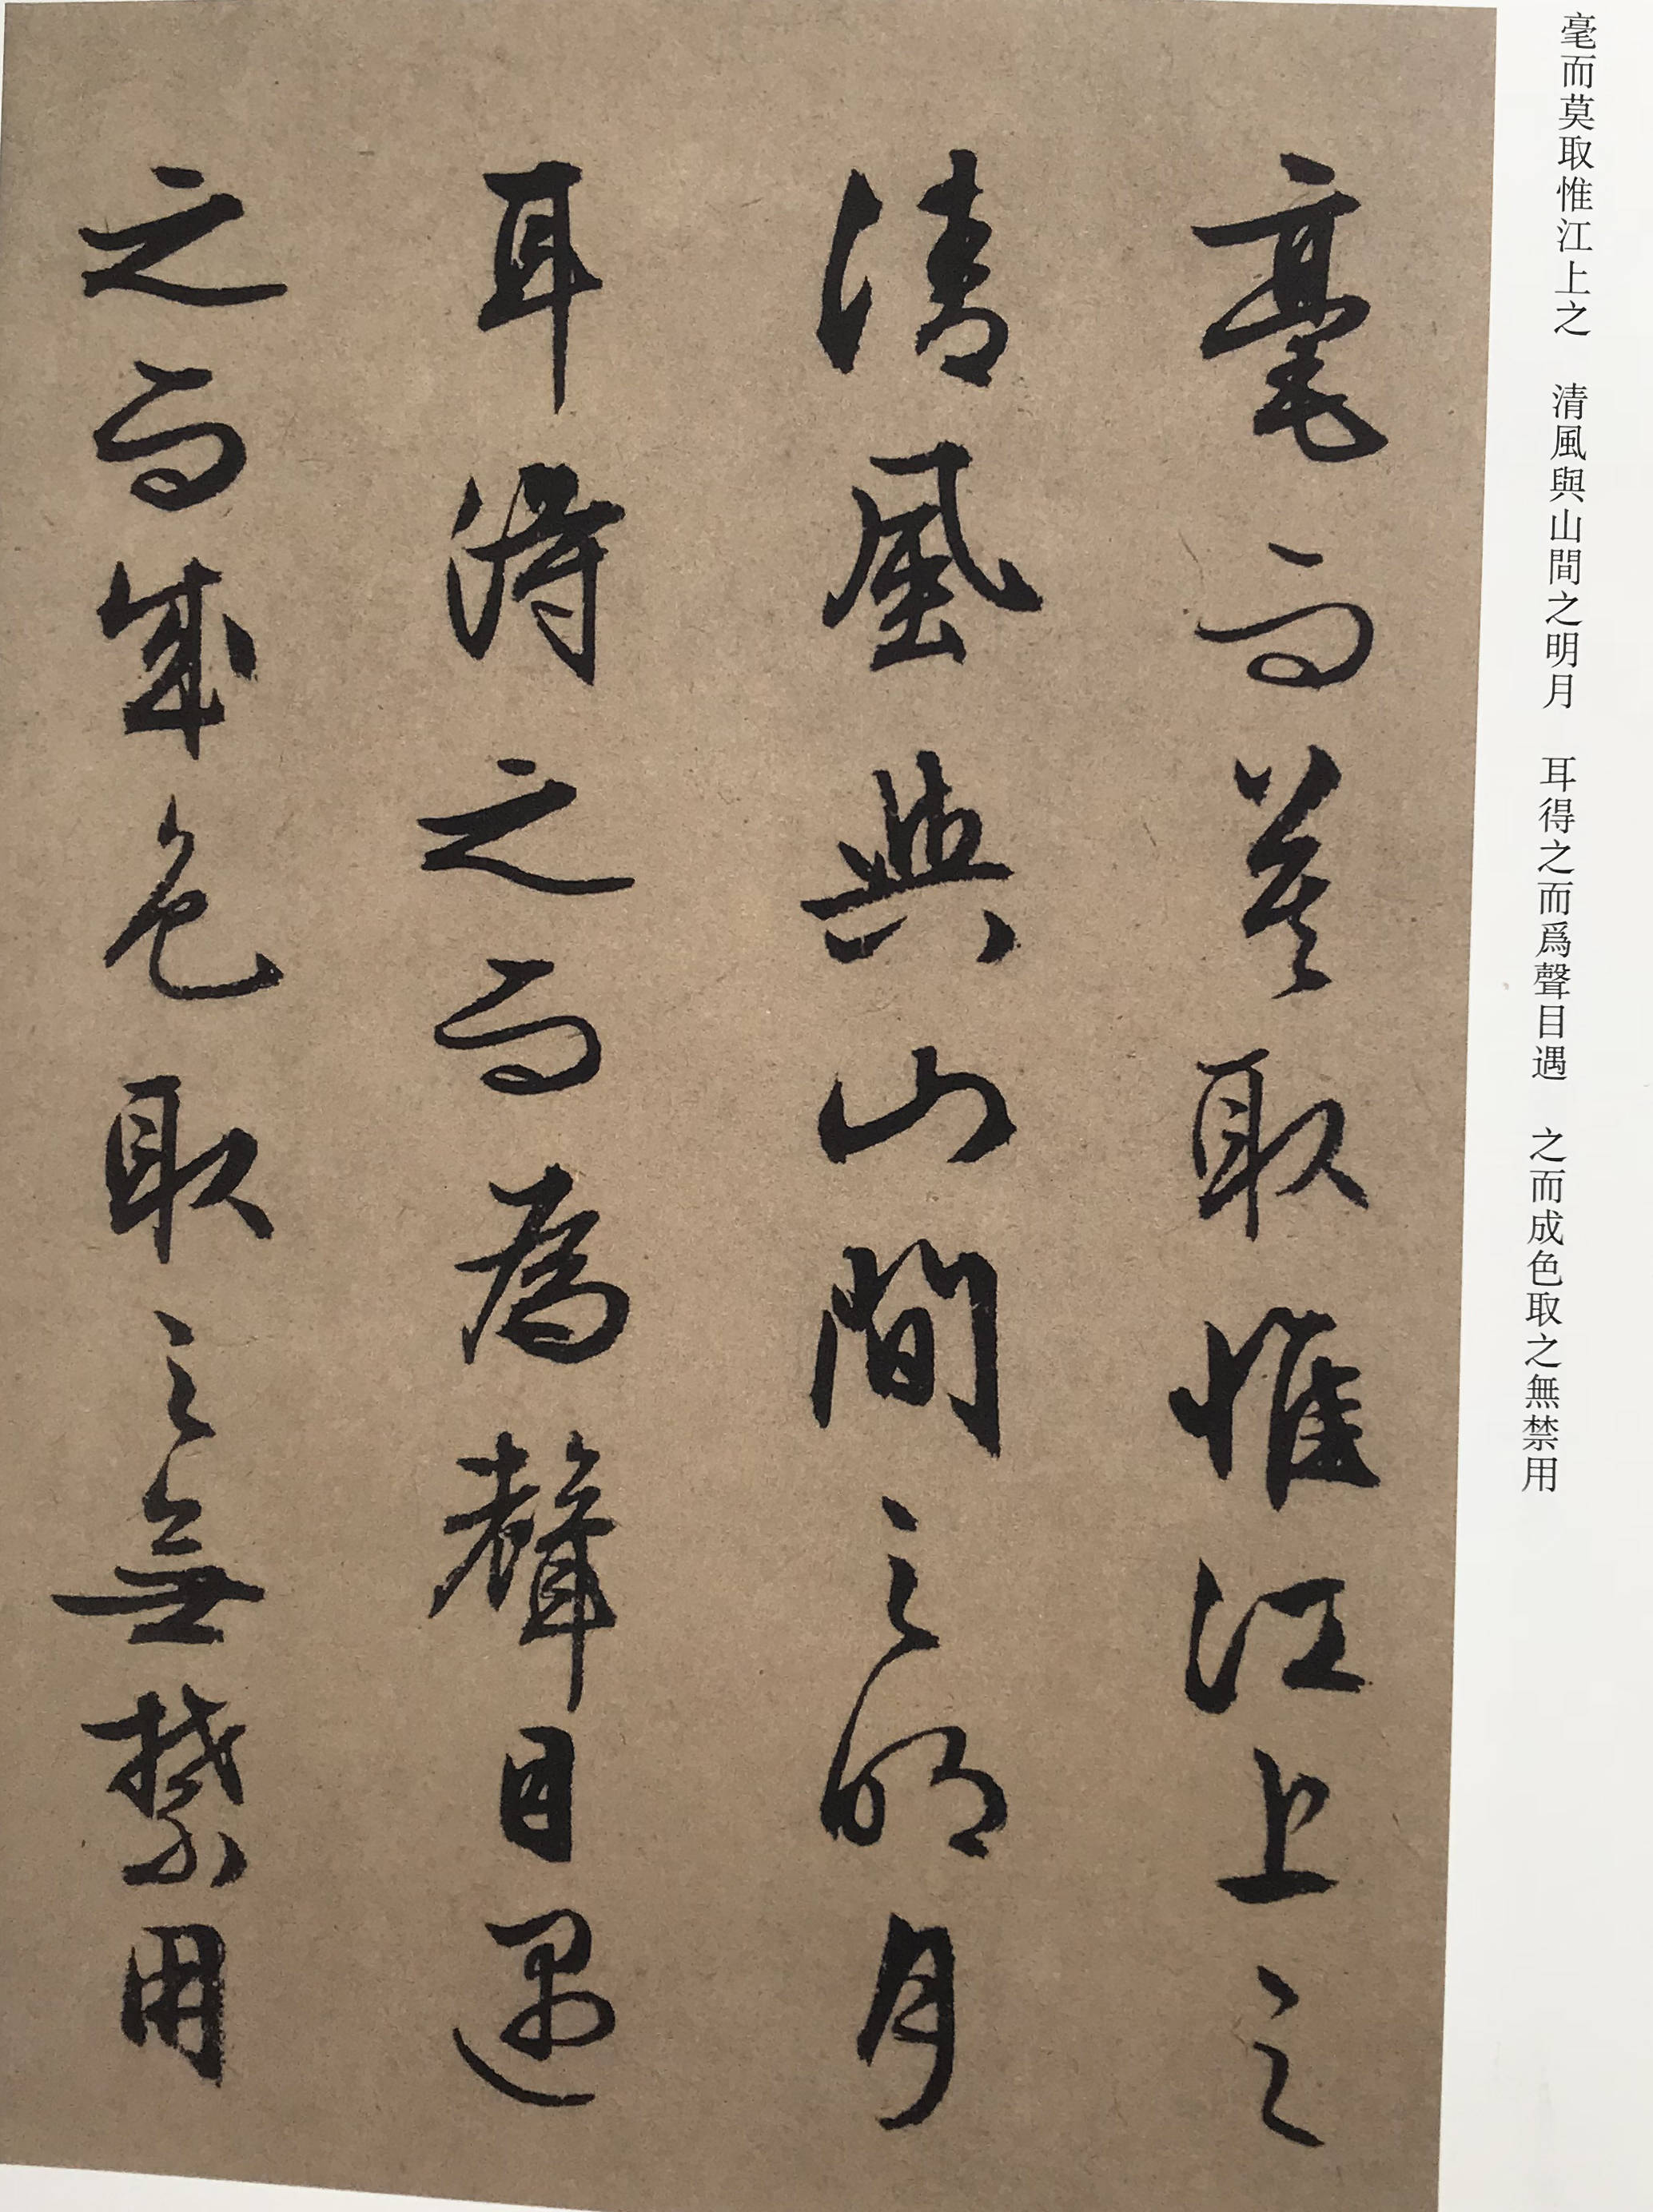 毫而莫取惟江上之　清風與山間之明月　耳得之而爲聲目遇　之而成色取之無禁用
毫而莫取惟江上之
清風與山間之明月
耳得之而為聲目遇
之而成色取之無禁用